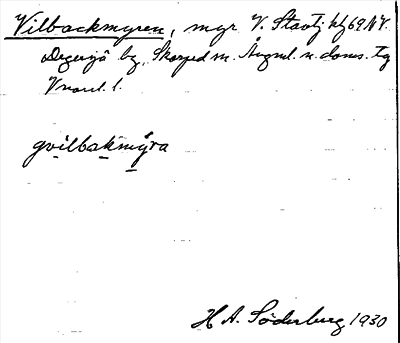 Vilbackmyren, myr V. Stavtj. kbl 69 NV.
Degersjö by, Skorped sn. Ångml. n. doms. tg
V norrl. l.
gvilbakmyra
H A. Söderberg 1930